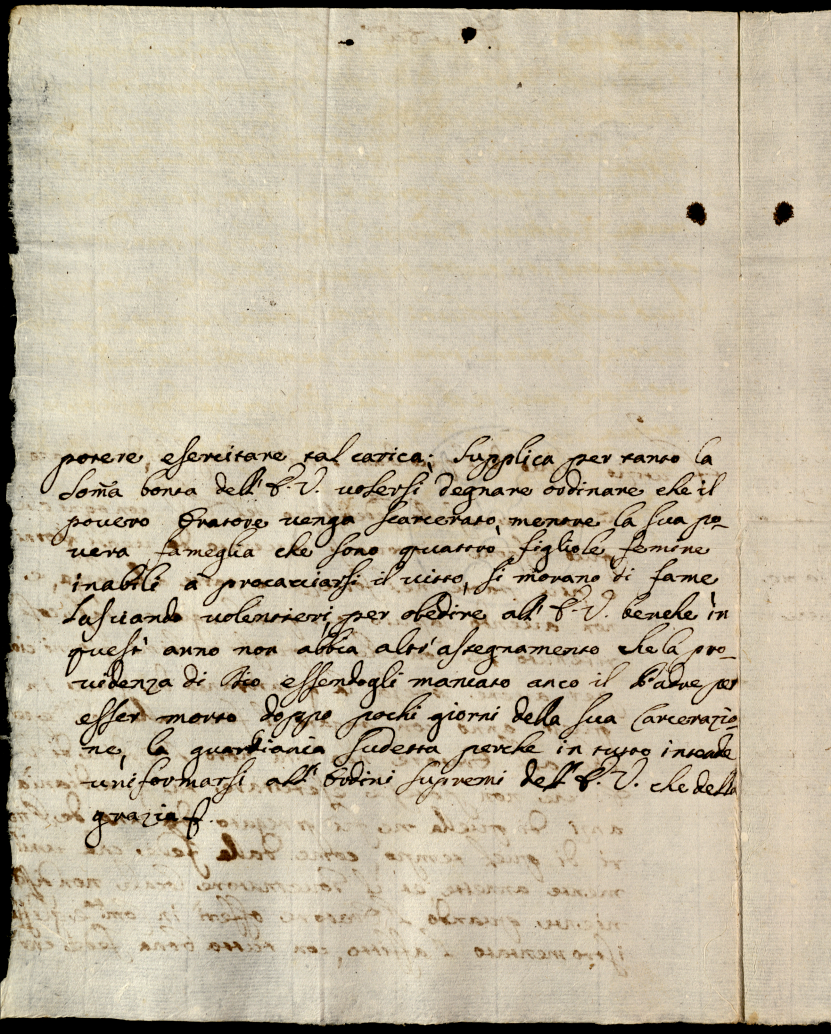 potere esercitare tal carica; Supplica per tanto la
Somã bonta dell' E. V. volersi degnare ordinare che il
povero Oratore venga scarcerato, mentre la sua po-
vera fameglia che sono quattro figliole femine
inabili a procacciarsi il vitto, si morano di fame
lasciando volentieri, per obedire all' E. V. benche in
quest' anno non abbia altr' assegnamento che la pro-
videnza di Dio essendogli mancato anco il Padre per
esser morto doppo pochi giorni della sua Carcerazio-
ne, la guardiania sudetta perche in tutto intende
uniformarsi all' Ordini supremi dell' E. V. che della
grazia